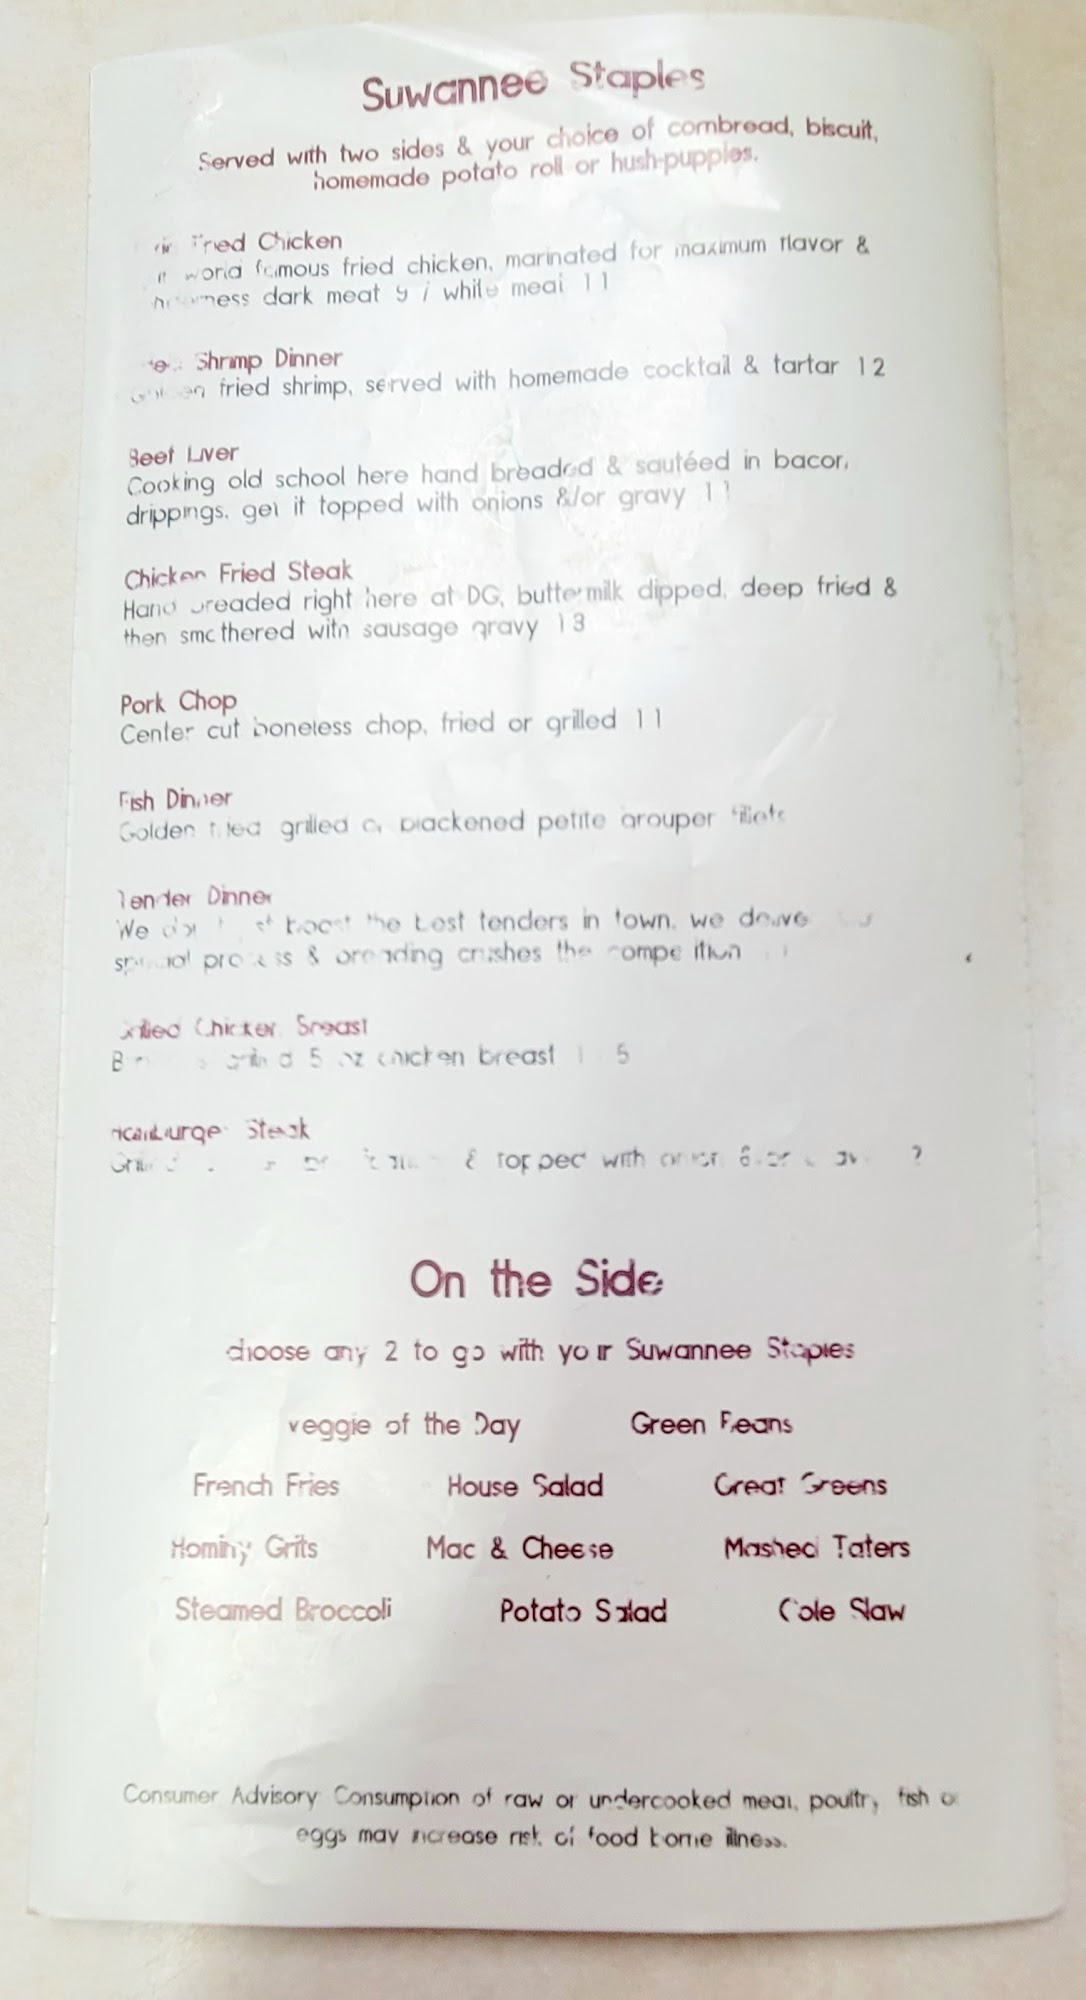 Suwannee Staples
Served with two sides & your choice of cornbread, biscuit,
homemade potato roll or hush-puppies.
Fried Chicken
world famous fried chicken, marinated for maximum flavor &
dark meat 9 / white meat 11
Shrimp Dinner
Golden fried shrimp, served with homemade cocktail & tartar 12
Beef Liver
Cooking old school here hand breaded & sautéed in bacon
drippings. get it topped with onions &/or gravy 11
Chicken Fried Steak
Hand breaded right here at DG, buttermilk dipped, deep fried &
then smothered with sausage gravy 13
Pork Chop
Center cut boneless chop, fried or grilled 11
Fish Dinner
Golden fried grilled or blackened petite grouper fillets
Tender Dinner
We boast the best tenders in town, we
special process & breading crushes the competition
Grilled Chicken Breast
5 oz chicken breast
Hamburger Steak
& topped with
On the Side
choose any 2 to go with your Suwannee Staples
Veggie of the Day Green Beans
French Fries House Salad Great Greens
Hominy Grits Mac & Cheese Mashed Taters
Steamed Broccoli Potato Salad Cole Slaw
Consumer Advisory Consumption of raw or undercooked meat, poultry, fish or
eggs may increase risk of food borne illness.